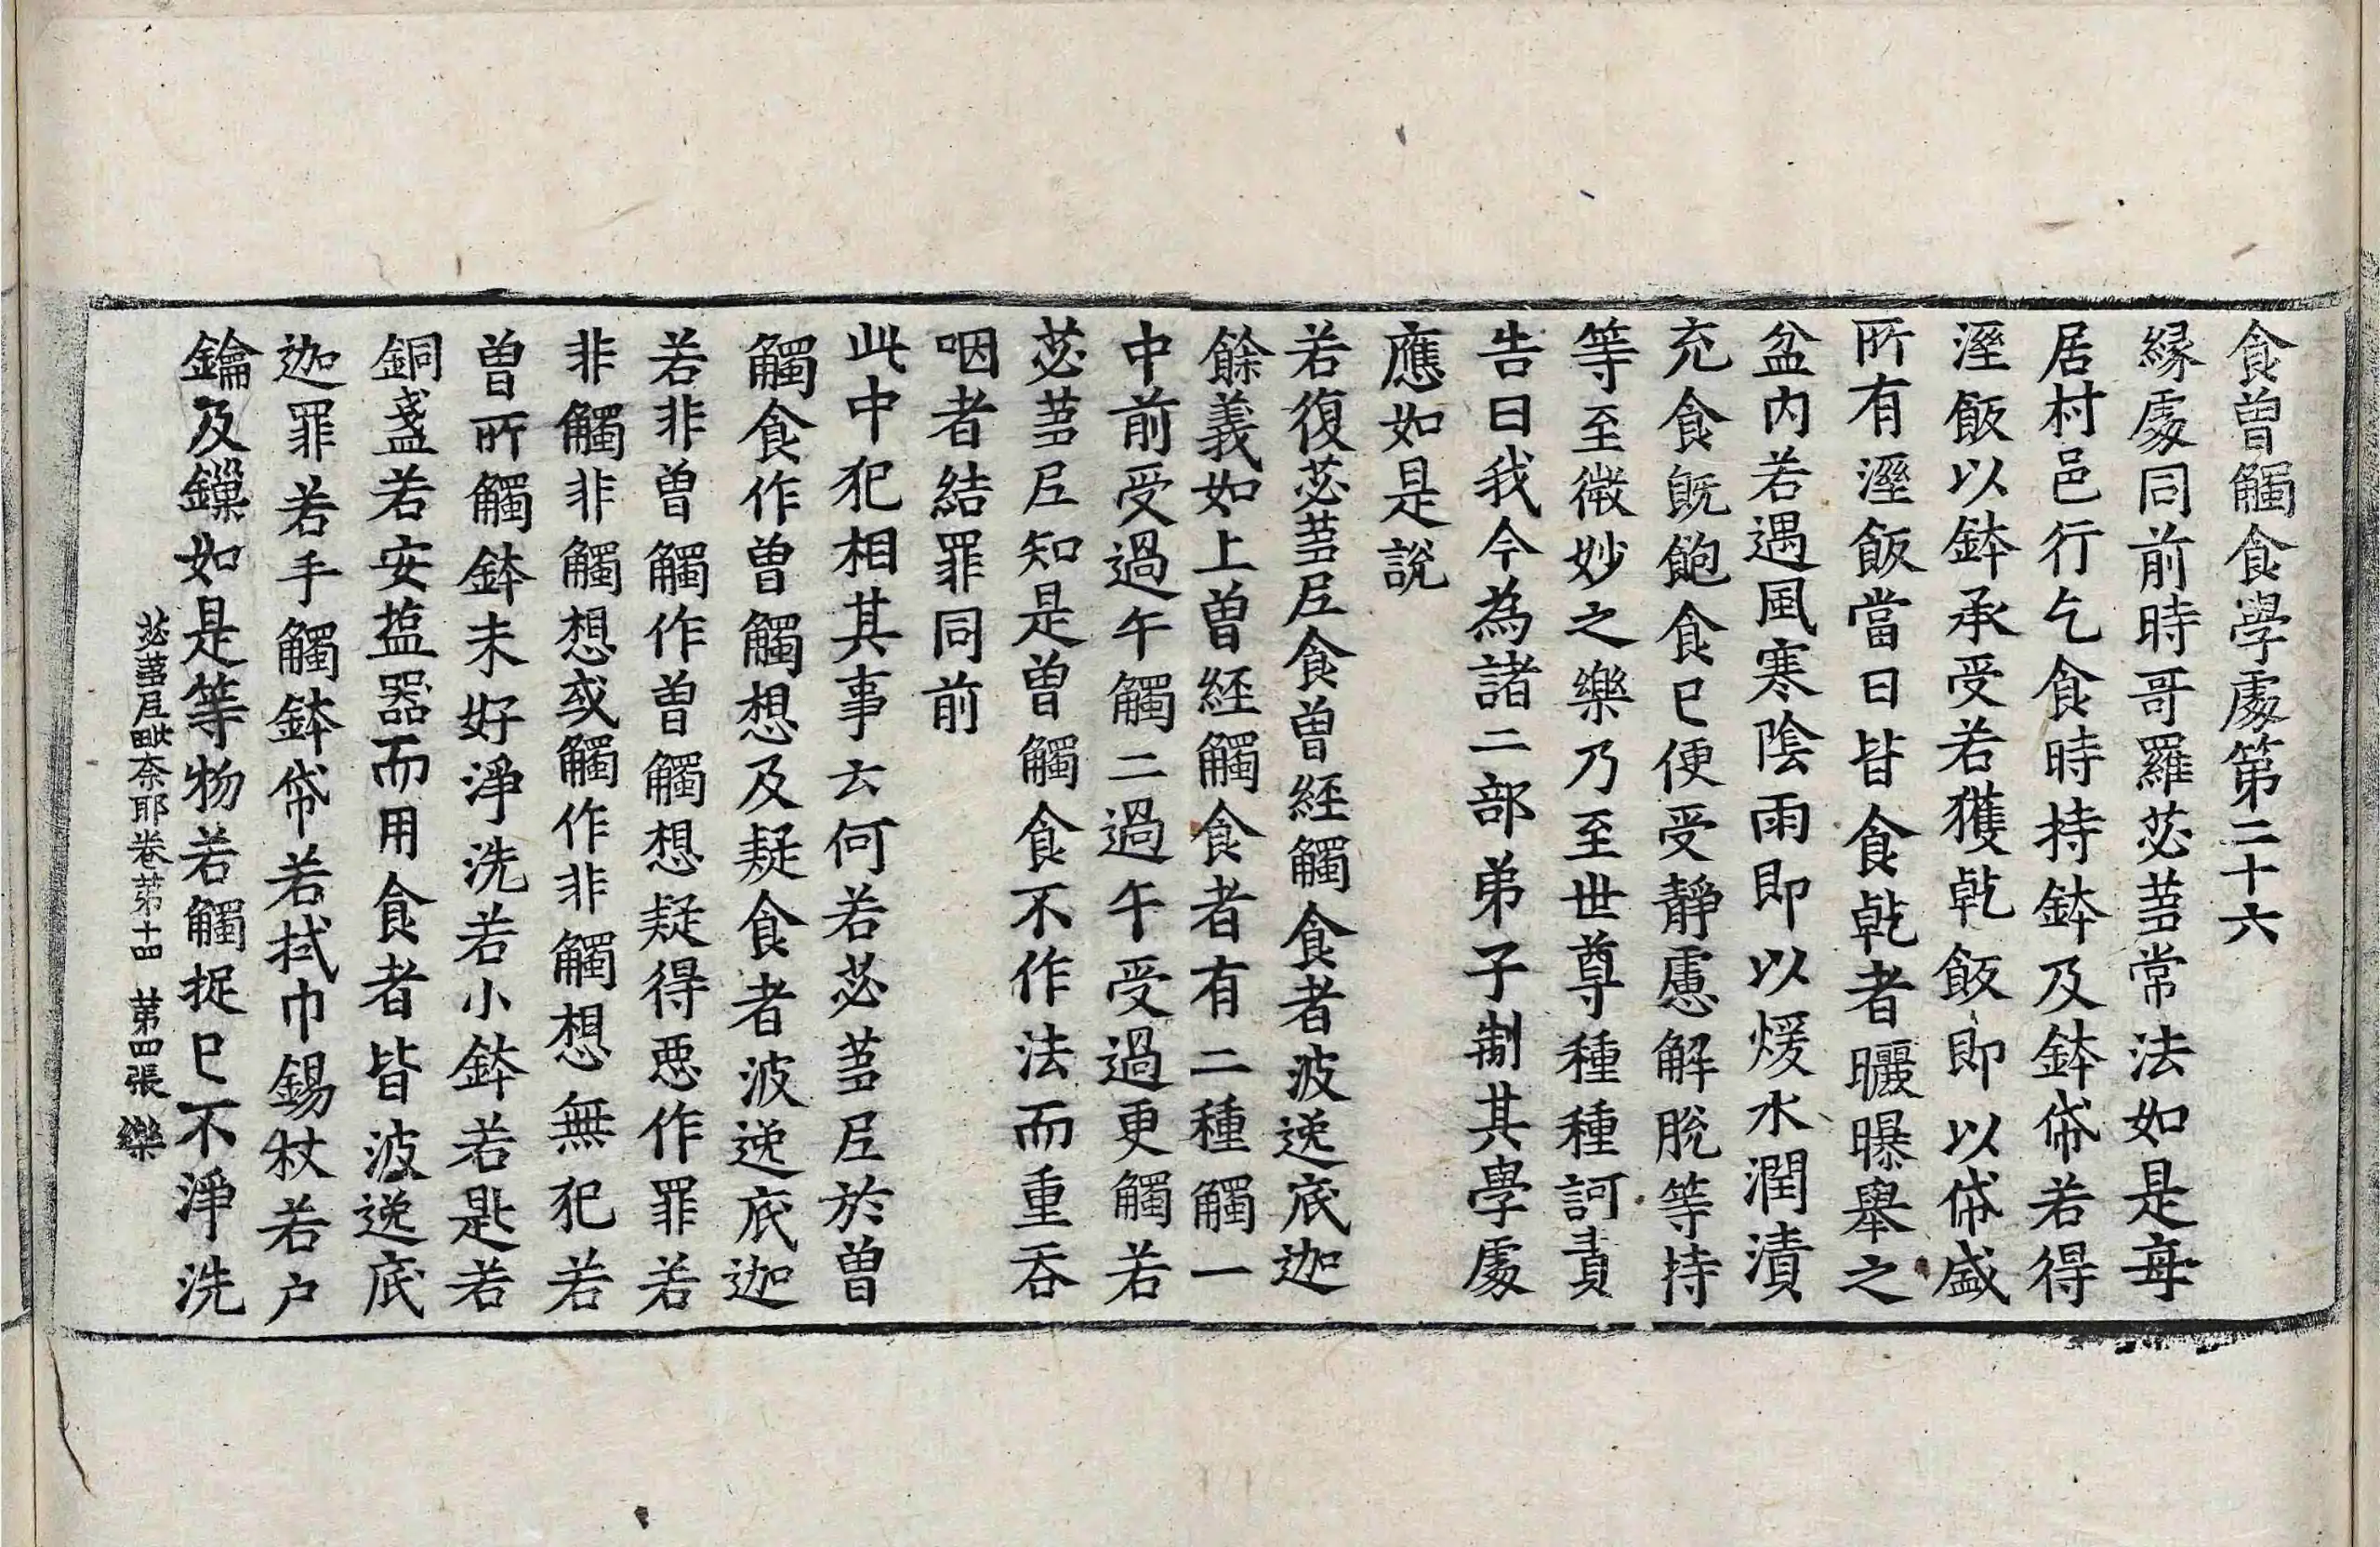 食曾觸食學處第二十六
緣處同前時哥羅苾蒭常法如是每
居村邑行乞食時持鉢及鉢帒若得
溼飯以鉢承受若獲乾飯即以帒盛
所有溼飯當日皆食乾者曬曝舉之
盆內若遇風寒陰雨即以煖水潤漬
充食旣飽食已便受靜慮解脫等持
等至微妙之樂乃至世尊種種訶責
告曰我今為諸二部弟子制其學處
應如是說
若復苾蒭尼食曾經觸食者波逸底迦
餘義如上曾經觸食者有二種觸一
中前受過午觸二過午受過更觸若
苾蒭尼知是曾觸食不作法而重吞
咽者結罪同前
此中犯相其事云何若苾蒭尼於曾
觸食作曾觸想及疑食者波逸底迦
若非曾觸作曾觸想疑得惡作罪若
非觸非觸想或觸作非觸想無犯若
曾所觸鉢未好淨洗若小鉢若匙若
銅盞若安鹽器而用食者皆波逸底
迦罪若手觸鉢帒若拭巾錫杖若戶
鑰及鏁如是等物若觸捉已不淨洗
苾蒭尼毗奈耶卷第十四 第四張 樂